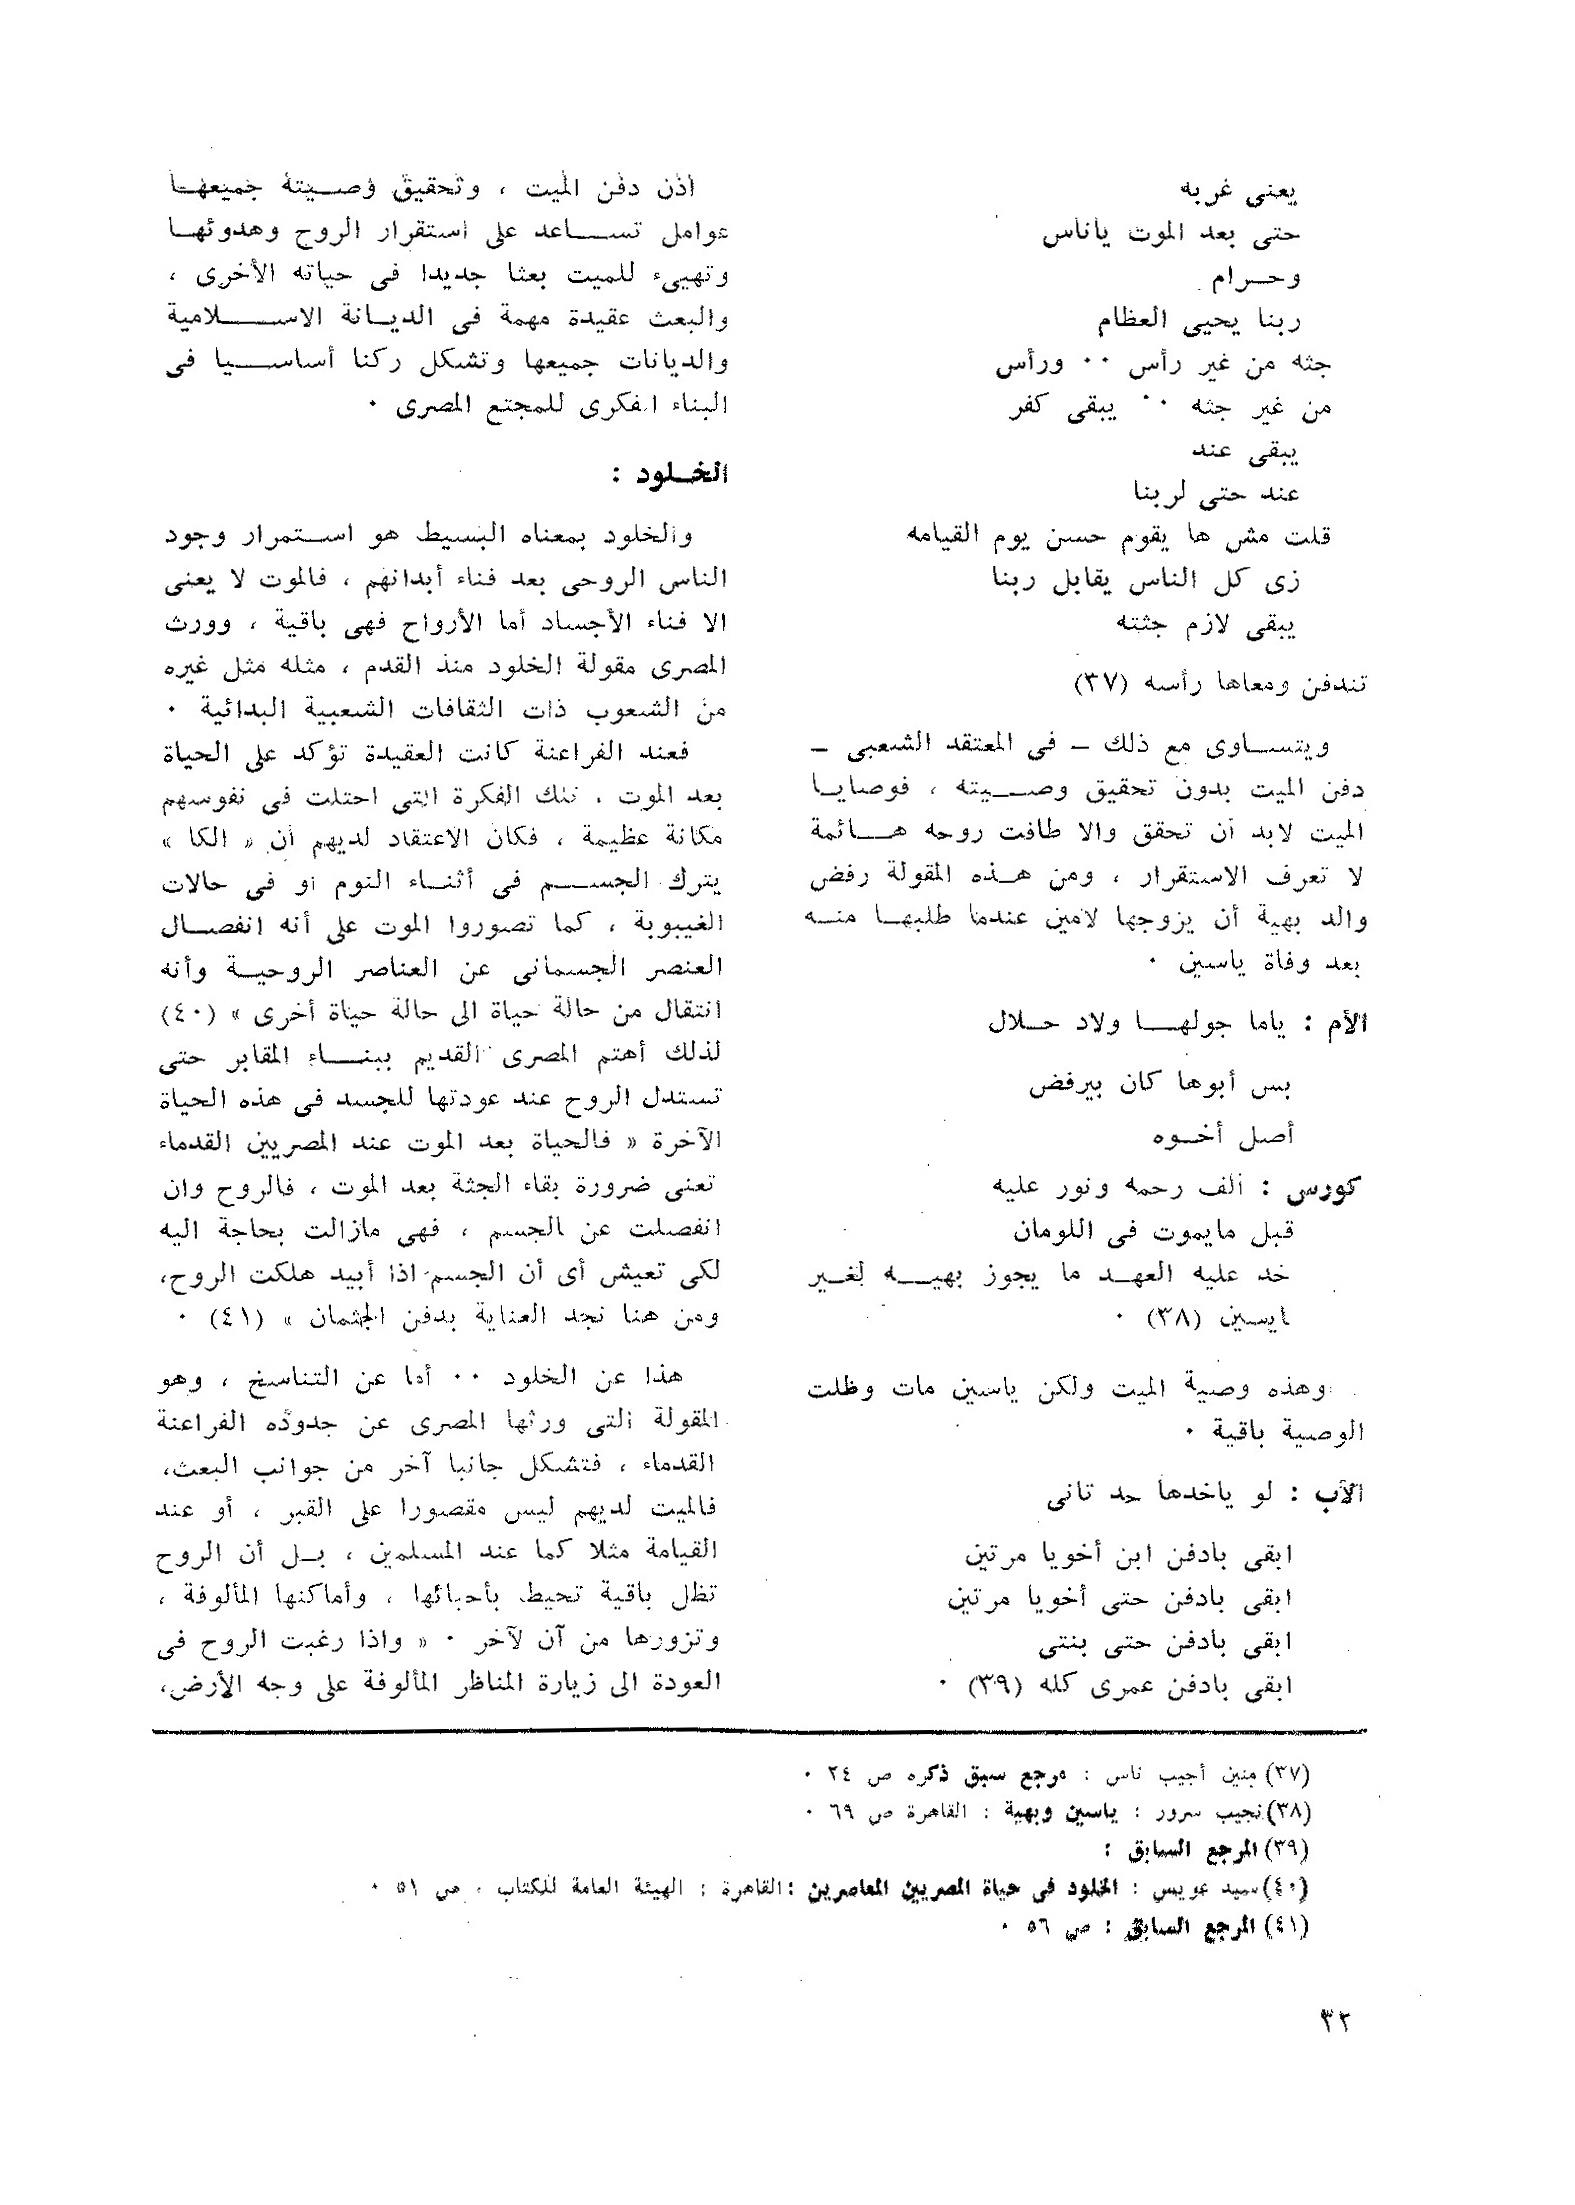 يعنى غربه
حتى بعد الموت ياناس
وحرام
ربنا يحيى العظام
جثه من غير رأس ٠٠ ورأس
من غير جثه ٠٠ يبقى كفر
يبقى عند
عند حتى لربنا
قلت مش ها يقوم حسن يوم القيامه
زى كل الناس يقابل ربنا
يبقى لازم جثته
تندفن ومعاها رأسه (٣٧)
ويتساوى مع ذلك – فى المعتقد الشعبى –
دفن الميت بدون تحقيق وصيته ، فوصايا
الميت لابد أن تحقق والا طافت روحه هائمة
لا تعرف الاستقرار ، ومن هذه المقولة رفض
والد بهية أن يزوجها لامين عندما طلبها منه
بعد وفاة ياسين ٠
الأم : ياما جولها ولاد حلال
بس أبوها كان بيرفض
أصل أخوه
كورس : ألف رحمه ونور عليه
قبل مايموت فى اللومان
خد عليه العهد ما يجوز بهيه لغير
ايسين (٣٨) ٠
وهذه وصية الميت ولكن ياسين مات وظلت
الوصية باقية ٠
الأب : لو ياخدها حد تانى
ابقى بادفن ابن أخويا مرتين
ابقى بادفن حتى أخويا مرتين
ابقى بادفن حتى بنتى
ابقى بادفن عمرى كله (٣٩) ٠
اذن دفن الميت ، وتحقيق وصيته جميعها
عوامل تساعد على استقرار الروح وهدوئها
وتهيىء للميت بعثا جديدا فى حياته الأخرى ،
والبعث عقيدة مهمة فى الديانة الاسلامية
والديانات جميعها وتشكل ركنا أساسيا فى
البناء الفكرى للمجتع المصرى ٠
الخلود :
والخلود بمعناه البسيط هو استمرار وجود
الناس الروحى بعد فناء أبدانهم ، فالموت لا يعنى
الا فناء الأجساد أما الأرواح فهى باقية ، وورث
المصرى مقولة الخلود منذ القدم ، مثله مثل غيره
من الشعوب ذات الثقافات الشعبية البدائية ٠
فعند الفراعنة كانت العقيدة تؤكد على الحياة
بعد الموت ، تلك الفكرة التى احتلت فى نفوسهم
مكانة عظيمة ، فكان الاعتقاد لديهم أن « الكا »
يترك الجسم فى أثناء النوم أو فى حالات
الغيبوبة ، كما تصوروا الموت على أنه انفصال
العنصر الجسمانى عن العناصر الروحية وأنه
انتقال من حالة حياة الى حالة حياة أخرى » (٤٠)
لذلك أهتم المصرى القديم ببناء المقابر حتى
تستدل الروح عند عودتها للجسد فى هذه الحياة
الآخرة « فالحياة بعد الموت عند المصريين القدماء
تعنى ضرورة بقاء الجثة بعد الموت ، فالروح وان
انفصلت عن الجسم ، فهى مازالت بحاجة اليه
لكى تعيش أى أن الجسم اذا أبيد هلكت الروح،
ومن هنا نجد العناية بدفن الجثمان » (٤١) ٠
هذا عن الخلود ٠٠ أما عن التناسخ ، وهو
المقولة التى ورثها المصرى عن جدوده الفراعنة
القدماء ، فتشكل جانبا آخر من جوانب البعث،
فالميت لديهم ليس مقصورا على القبر ، أو عند
القيامة مثلا كما عند المسلمين ، بل أن الروح
تظل باقية تحيط بأحبائها ، وأماكنها المألوفة ،
وتزورها من آن لآخر ٠ « واذا رغبت الروح فى
العودة الى زيارة المناظر المألوفة على وجه الأرض،
(٣٧) منين أجيب ناس : مرجع سبق ذكره ص ٢٤ ٠
(٣٨) نجيب سرور : ياسين وبهية : القاهرة ص ٦٩ ٠
(٣٩) المرجع السابق :
(٤٠) سيد عويس : الخلود فى حياة المصريين المعاصرين : القاهرة : الهيئة العامة للكتاب ، ص ٥١ ٠
(٤١) المرجع السابق : ص ٥٦ ٠
٣٢